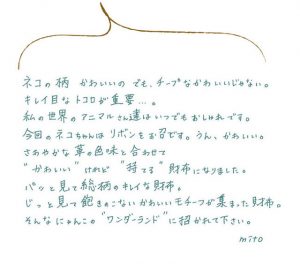 ネコの柄 かわいいの でも、チープなかわいいじゃない。
キレイ目なトコロが重要…。
私の世界のアニマルさん達はいつでもおしゃれです。
今回のネコちゃんはリボンをお召です。うん、かわいい。
さわやかな草の色味と合わせて
"かわいい"けれど"持てる"財布になりました。
パッと見て総柄のキレイな財布。
じっと見て飽きのこないかわいいモチーフが集まった財布。
そんなにゃんこの"ワンダーランド"に招かれて下さい。
mito